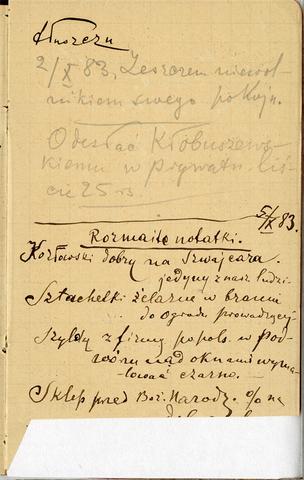 2/X 83, Jestem niewol-
nikiem swego pokoju.
Odesłać Kłobuszews-
kiemu w prywatn. liś-
cie 25 rs.
5/IX 83.
Rozmaite notatki.
Kozłowski dobry na Szwajcara.
jedyny z nasz. ludzi.
Sztachetki żelazne w bramie
do ogrodu prowadzącej
Szyldy z firmy po pols. w Pod-
wórzu nad oknami wyma-
lować czarno.
Sklep przed Boż. Narodz. % na